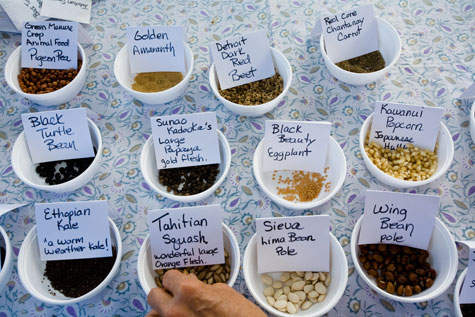 Green Manure
Crop
Animal Feed
Pigeon Pea
Golden
Amaranth
Detroit
Dark Red
Beet
Red Core
Chantanay
Carrot
Black
Turtle
Bean
Sunao
Kadooka's
Large
Papaya
gold flesh.
Black Beauty
Eggplant
Kawanui
Popcorn
Japanese
Ethopian
Kale
"a warm
weather kale!
Tahitian
Squash
wonderful large
Orange Flesh.
Sieva
Lima Bean
Pole
Wing
Bean
pole